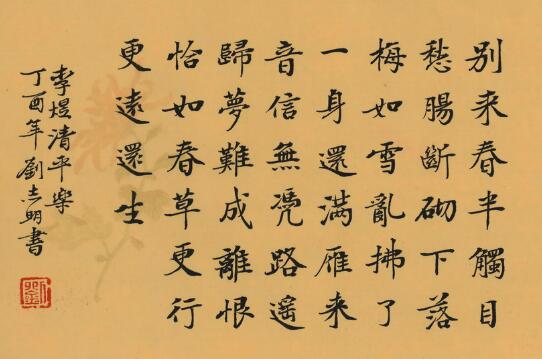 別来春半觸目
愁腸斷砌下落
梅如雪亂拂了
一身還滿雁来
音信無凴路遥
歸夢難成離恨
恰如春草更行
更遠還生
李煜清平樂
丁酉年劉志明書
劉